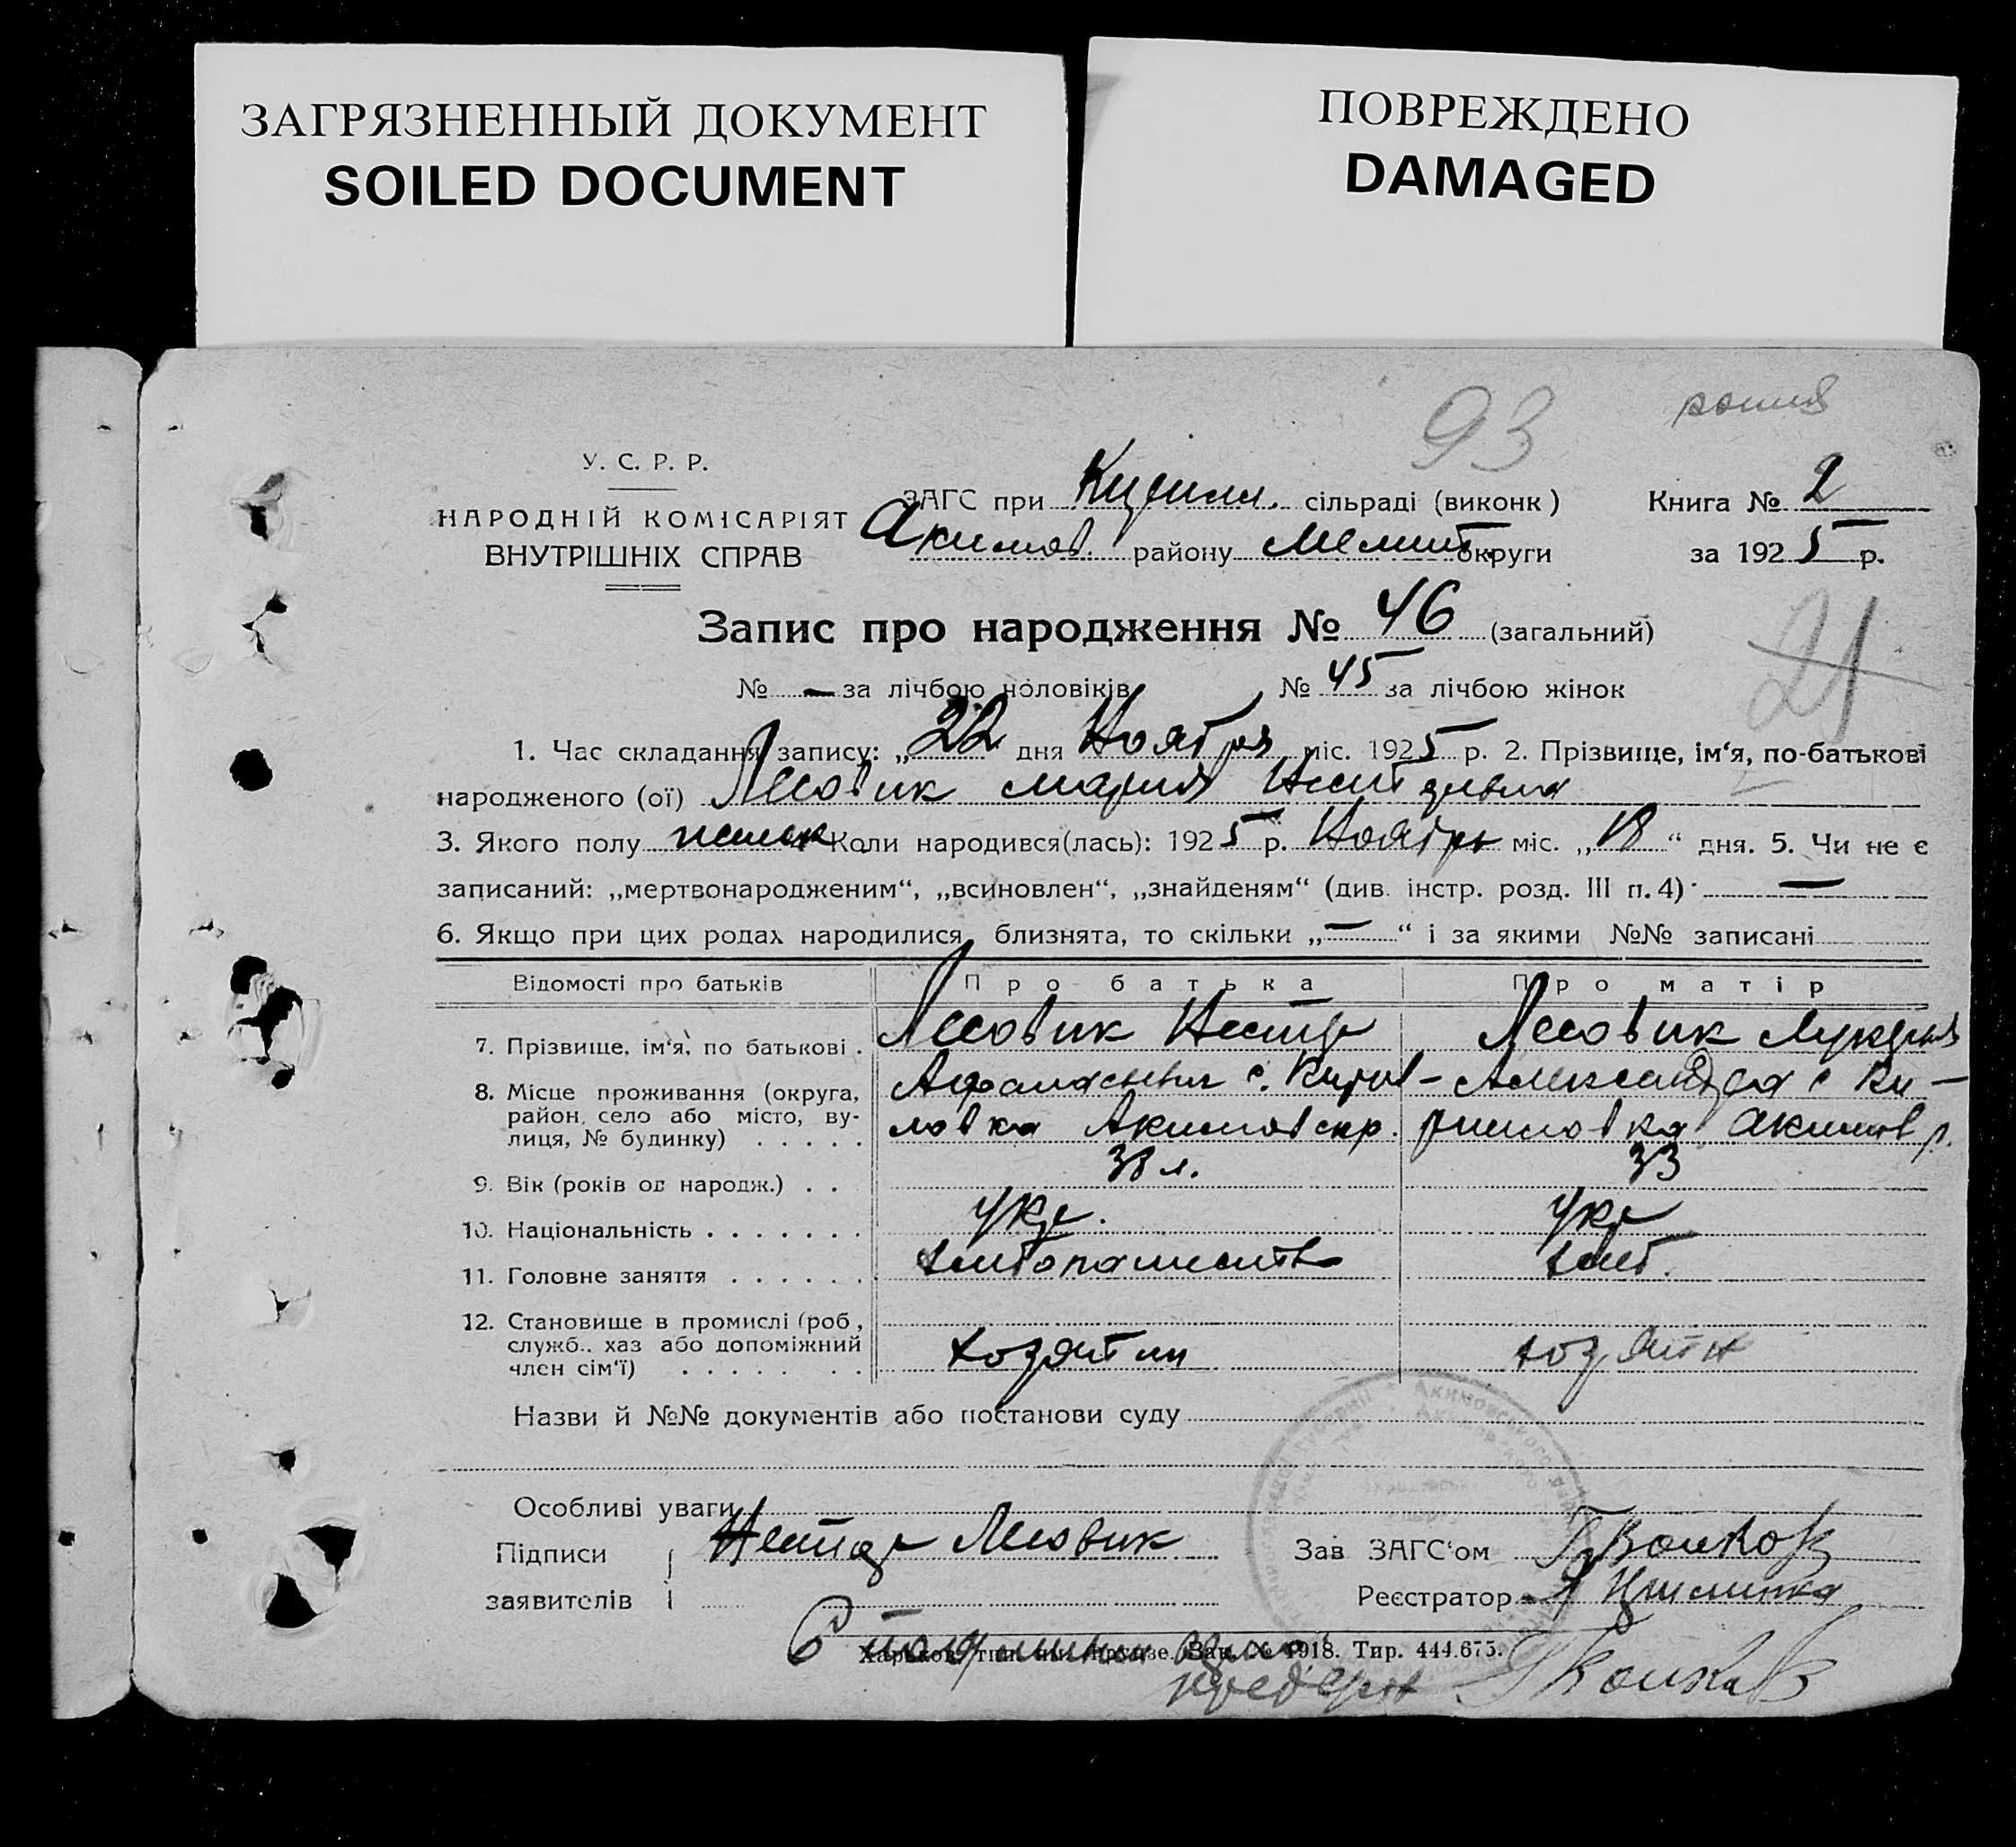 ЗАГРЯЗНЕННЫЙ ДОКУМЕНТ
SOILED DOCUMENT
ПОВРЕЖДЕНО
DAMAGED
93
У. С. Р. Р.
НАРОДНІЙ КОМІСАРІЯТ
ВНУТРІШНІХ СПРАВ
ЗАГС при Кирилл. сільраді (виконк)
Акимов. району Мелит. округи
Книга № 2
за 1925 р.
Запис про народження № 46 (загальний)
21
№ — за лічбою чоловіків № 45 за лічбою жінок
1. Час складання запису: „22 дня Ноября міс. 1925 р. 2. Прізвище, ім‘я, по-батькові
народженого (ої) Лесовик Мария Несторовна
3. Якого полу женск Коли народився(лась): 1925 р. Ноябрь міс. „18“ дня. 5. Чи не є
записаний: „мертвонародженим“, „всиновлен“, „знайденям“ (див. інстр. розд. III п. 4) —
6. Якщо при цих родах народилися близнята, то скільки „—“ і за якими №№ записані
Відомості про батьків Про батька Про матір
7. Прізвище, ім‘я, по батькові . Лесовик Нестор Лесовик Лукерия
8. Місце проживання (округа, Афанасьевич с. Кирил- Александров с Ки-
район, село або місто, ву- ловка Акимовск р. рилловка Акимов р.
лиця, № будинку) . . . . .
9. Вік (років од народж.) . . 38 л. 33
10. Національність . . . . . . . Укр. Укр
11. Головне заняття . . . . . . . хлебопашеств хлеб.
12. Становище в промислі (роб,
служб., хаз або допоміжний хозяин хозяйн
член сім‘ї) . . . . . . .
Назви й №№ документів або постанови суду
Особливі уваги
Підписи Нестор Лесовик Зав ЗАГС‘ом Волков
заявителів Реєстратор
Тир. 444.675.
Волков